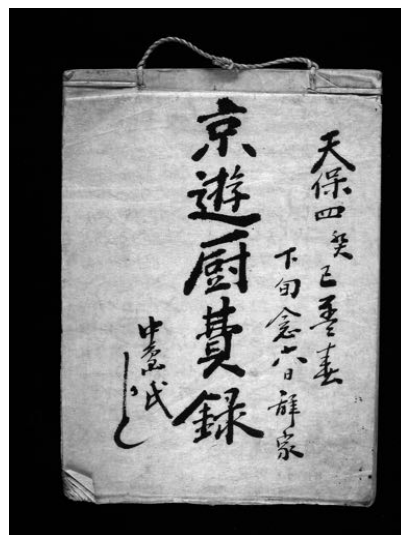 天保四癸巳孟春
下旬念六日辞家
京遊厨費録
中 氏